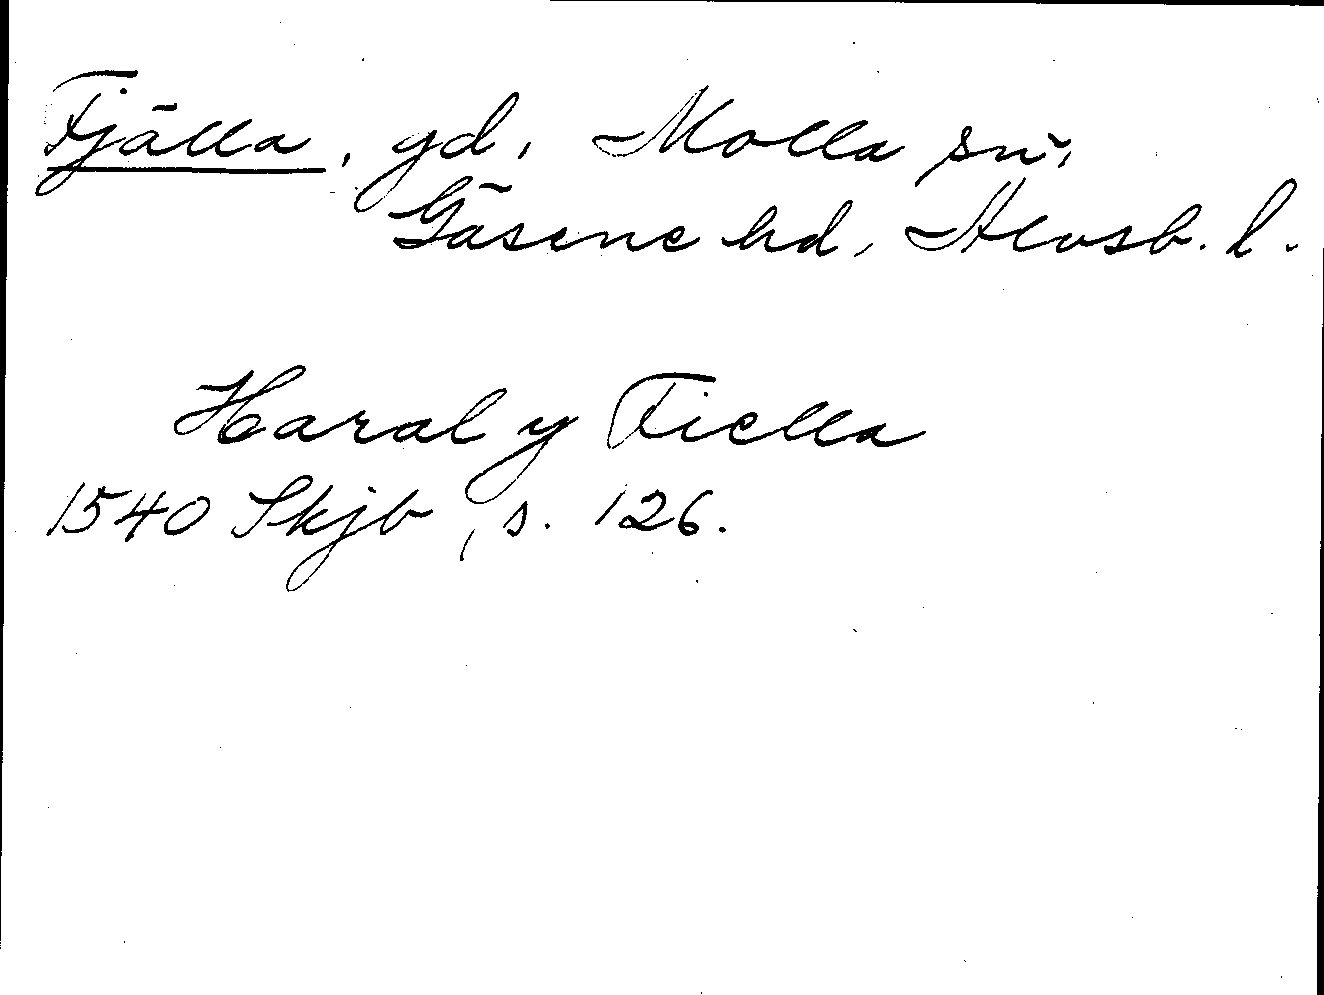 Fjälla, gd, Molla sn,
Gäsene hd, Älvsb. l.
Haral y Fiella
1540 Skjb, s. 126.